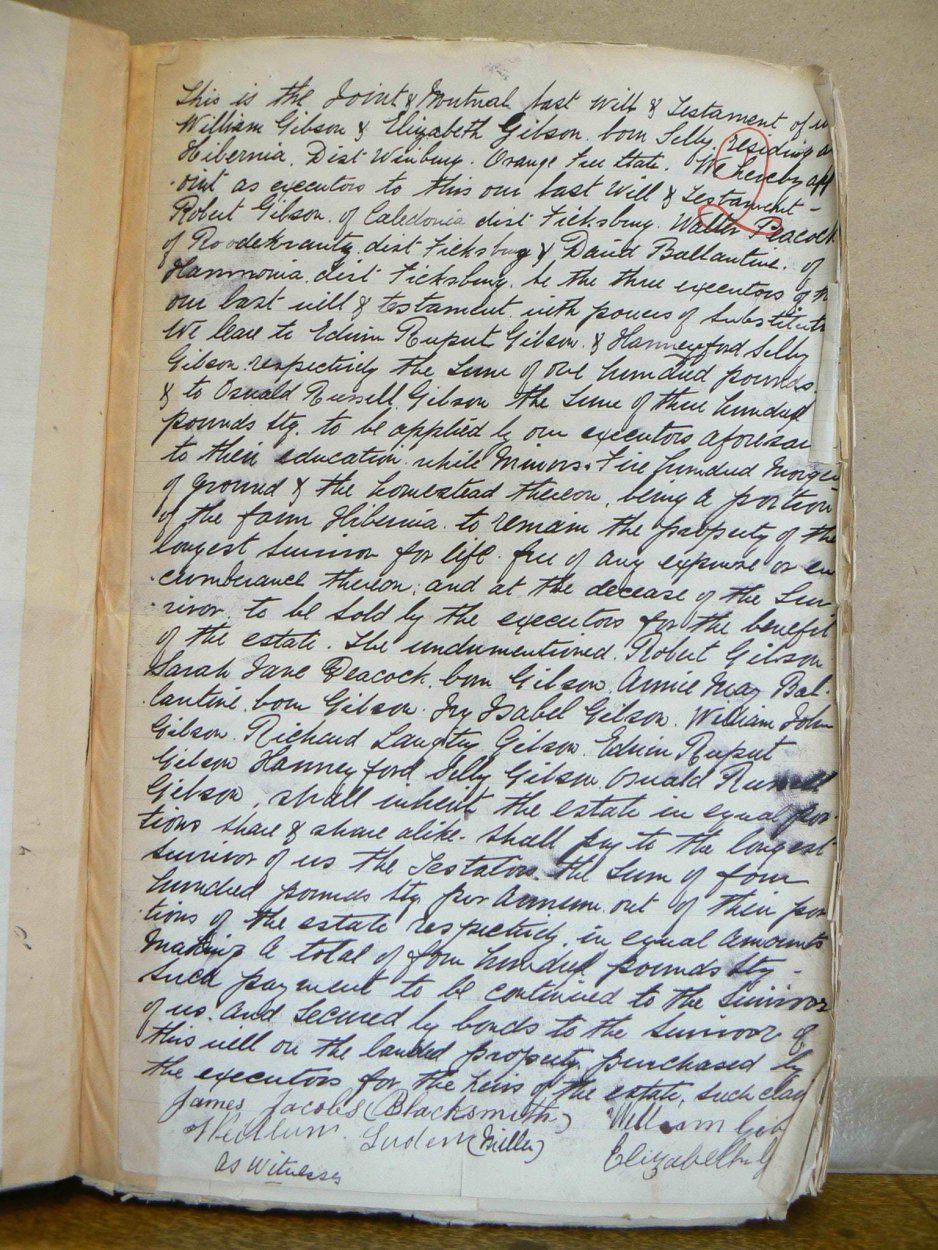 This is the Joint & Mutual last will & Testament of
William Gibson & Elizabeth Gibson born Selby, residing at
Hibernia, Dist Winburg. Orange Free State. We hereby app
oint as executors to this our last Will & Testament -
Robert Gibson of Caledonia dist Ficksburg. Walter Peacock
of Roodekrantz dist Ficksburg & David Ballantine. of
Hammonia dist Ficksburg. be the three executors of
our last will & testament with powers of substitute
We leave to Edwin Rupert Gibson. & Hanneyford Selby
Gibson respectively the sum of one hundred pounds
& to Oswald Russell Gibson the sum of three hundred
pounds stg. to be applied by our executors aforesai
to their education while Minors. Five hundred Morgen
of ground & the homestead thereon, being a portion
of the farm Hibernia. to remain the property of the
longest survivor for life. free of any expense or en
cumberance thereon; and at the decease of the Sur
vivor. to be sold by the executors for the benefit
of the estate. The undermentioned. Robert Gibson
Sarah Jane Peacock. born Gibson. Annie May Bal-
lantine. born Gibson. Ivy Isabel Gibson. William John
Gibson. Richard Langtry Gibson. Edwin Rupert
Gibson Hanneyford Selby Gibson Oswald Russell
Gibson, shall inherit the estate in equal por-
tions share & share alike. shall pay to the longest
survivor of us the Testators the sum of four
hundred pounds stg per Annum. out of their por
tions of the estate respectively, in equal amounts
Making a total of four hundred pounds stg -
such payment to be continued to the survivor
of us. and secured by bonds to the survivor of
this will on the landed property purchased by
the executors for the heirs of the estate, such
James Jacobs (Blacksmith) William Gib
(Miller) Elizabeth
as Witnesses